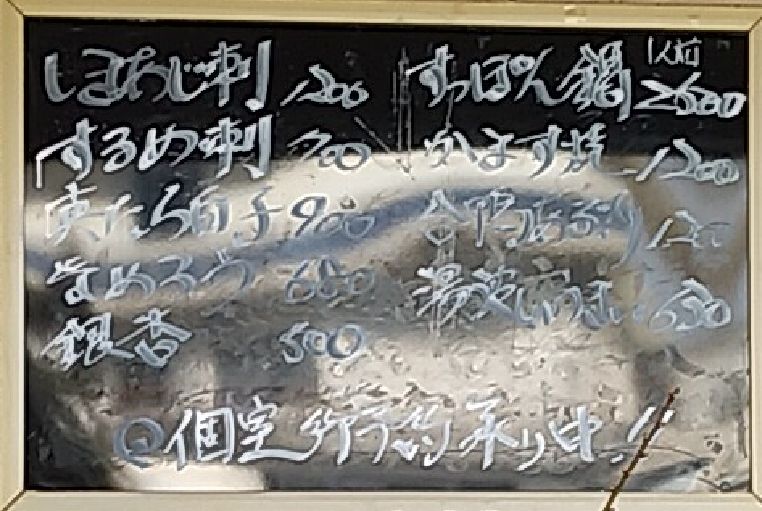 しまあじ刺 1200
するめ刺 700
真たら白子 900
なめろう 680
銀杏 500
すっぽん鍋 1人前 2600
かます焼 1200
合鴨あぶり
湯波
個室御予約承り中!!